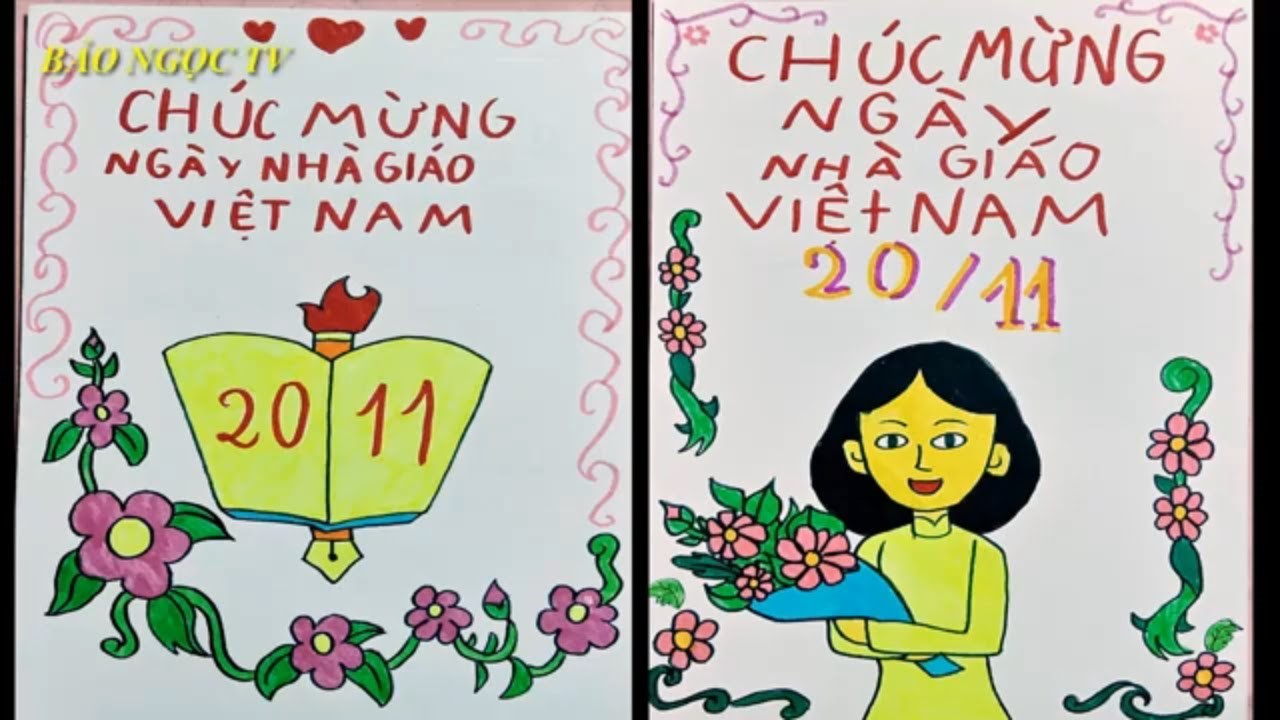 BẢO NGỌC TV
CHÚC MỪNG
NGÀY NHÀ GIÁO
VIỆT NAM
20 11
CHÚC MỪNG
NGÀY
NHÀ GIÁO
VIỆt NAM
20/11